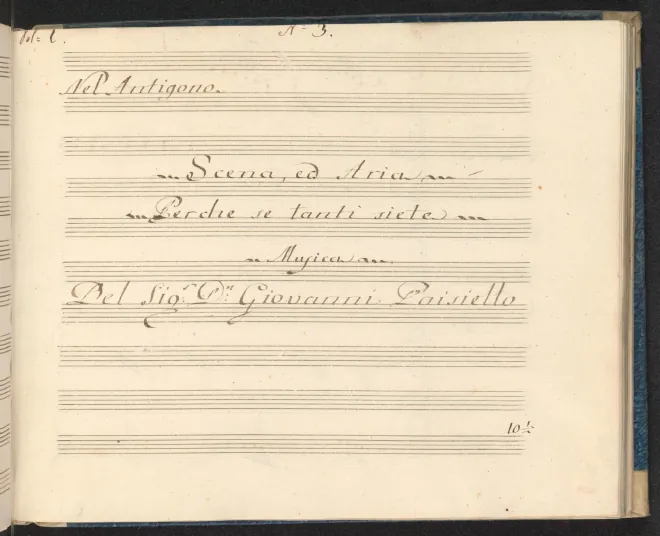 Vol: 1. N° 3.
Nel Antigono.
Scena, ed Aria
Perche se tanti siete
Musica
Del Sig.r D.n Giovanni Paisiello
10½